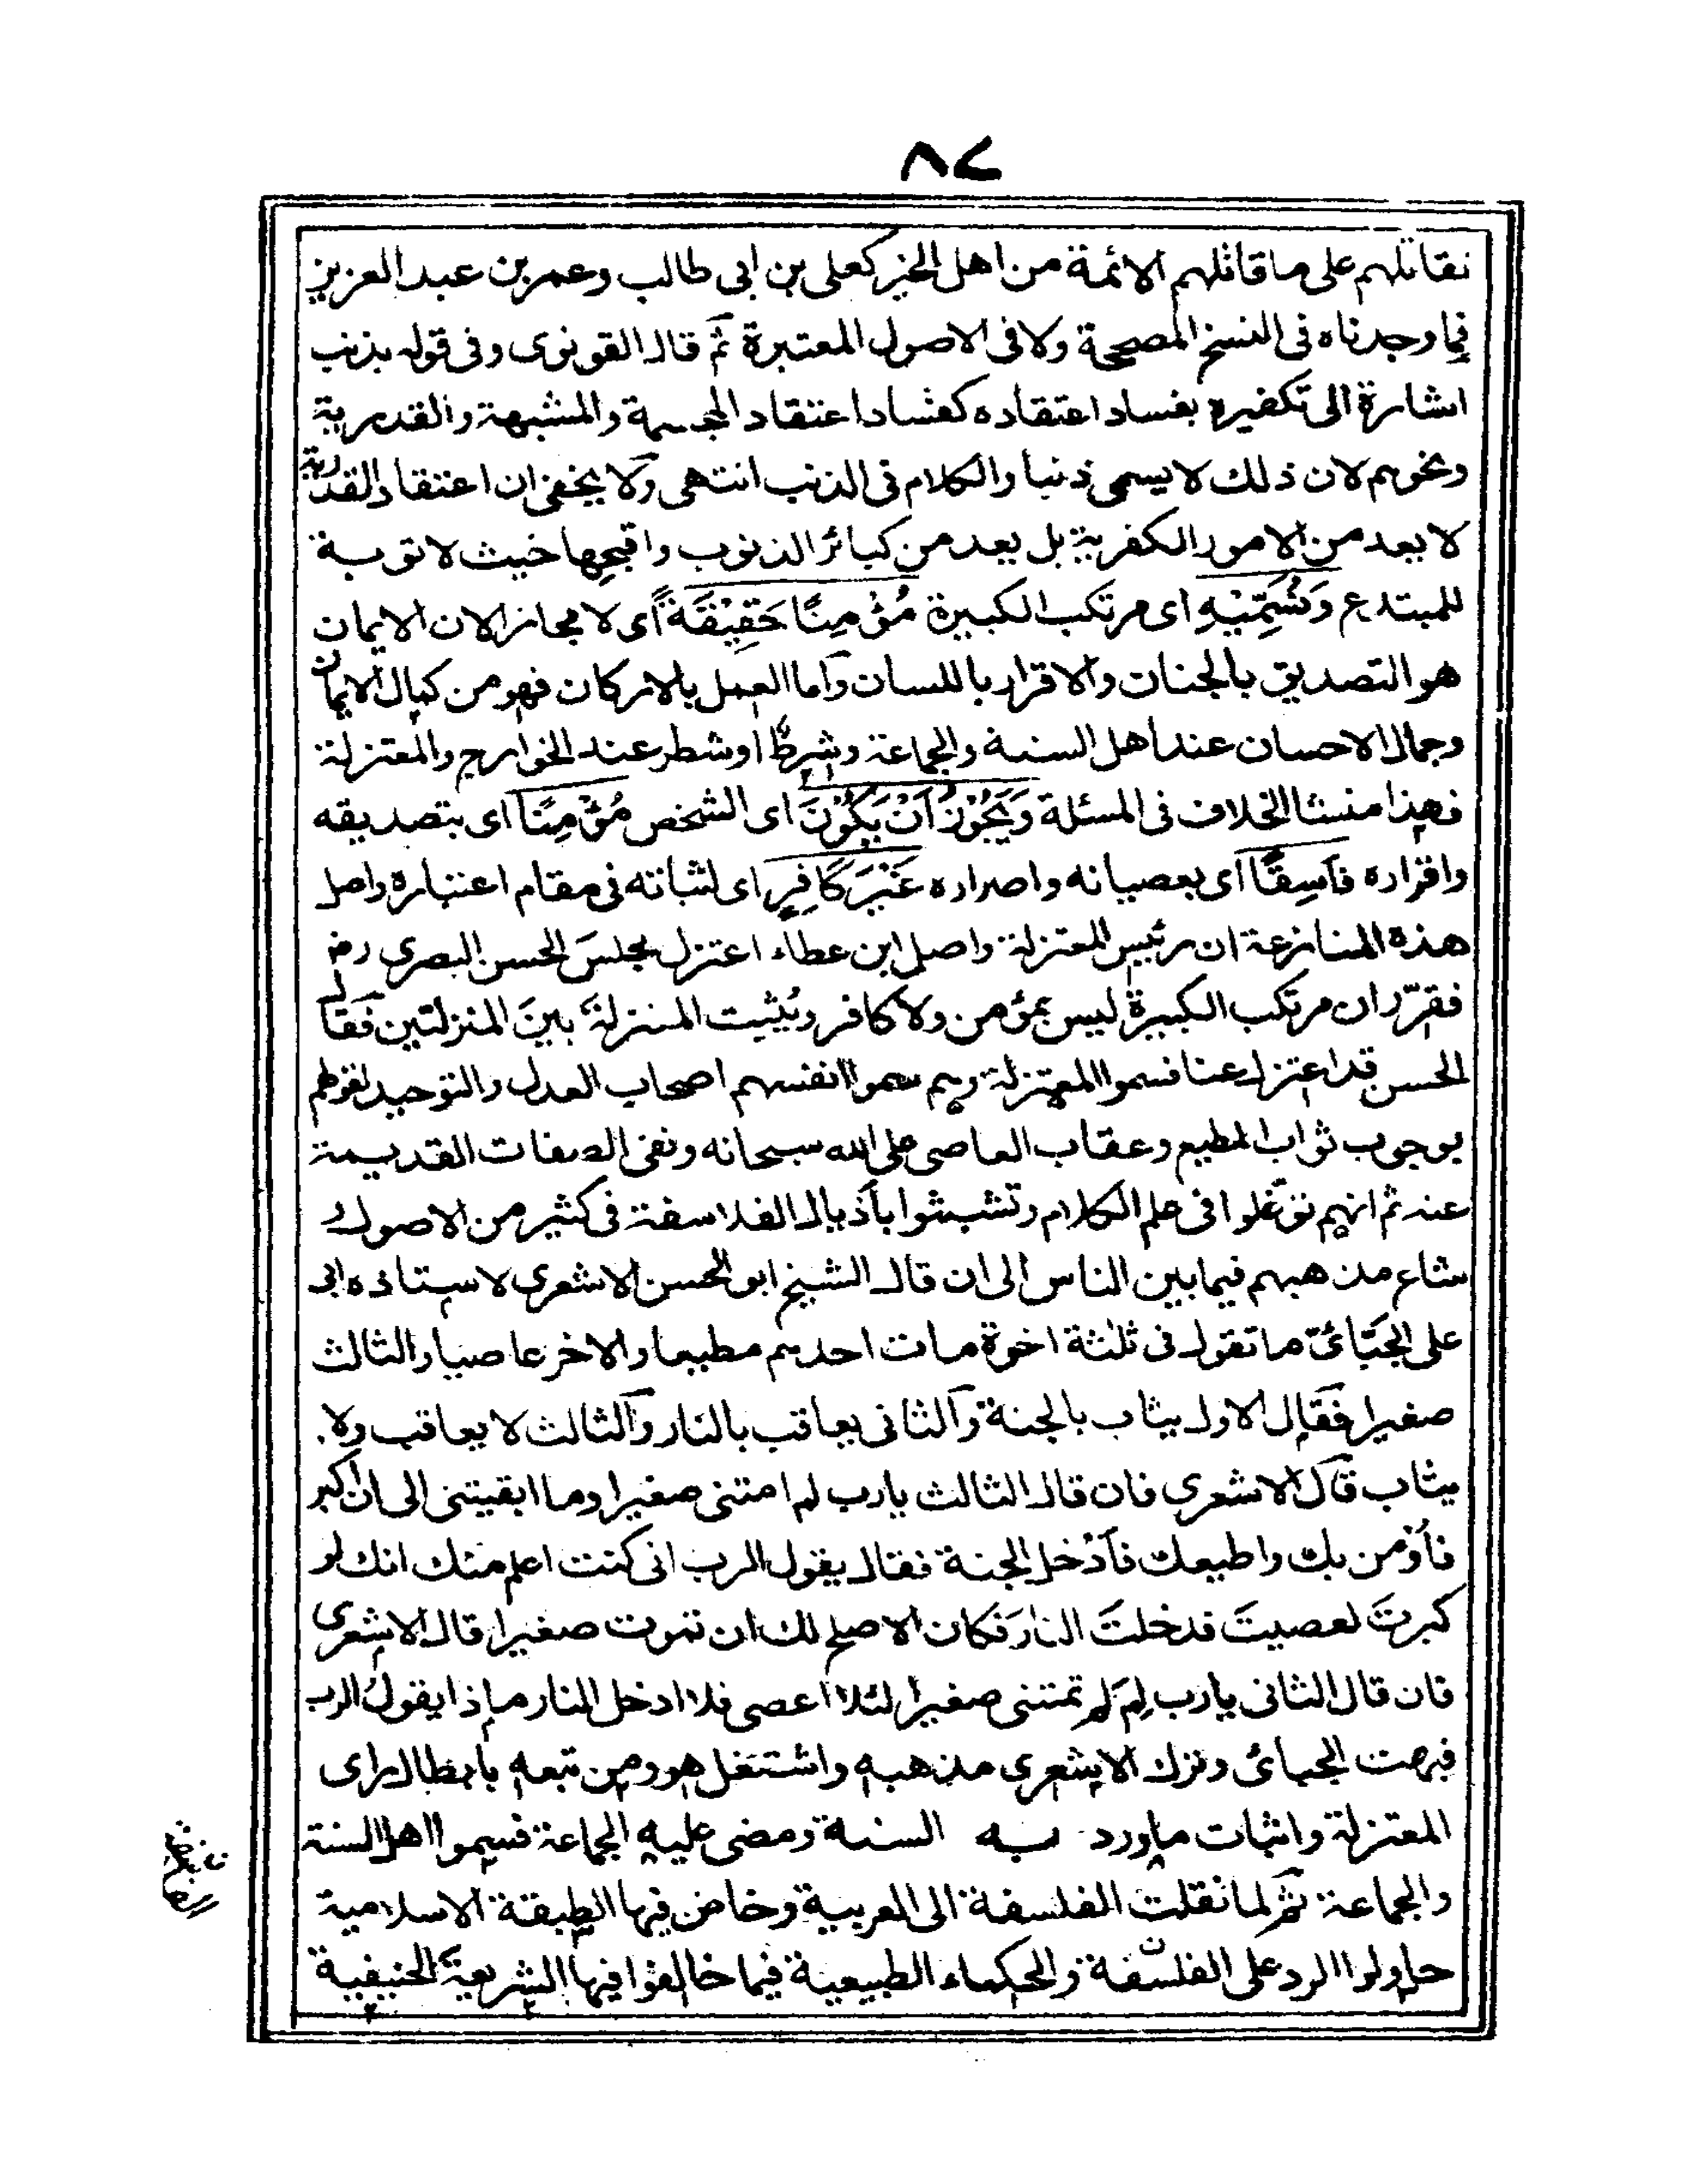 ٨٧
نقاتلهم على ما قاتلهم الائمة من اهل الخير كعلى بن ابى طالب وعمر بن عبد العزيز
فما وجدناه فى النسخ المصححة ولا فى الاصول المعتبرة ثم قال القونوى وفى قوله بذنب
اشارة الى تكفيره بفساد اعتقاده كفساد اعتقاد المجسمة والمشبهة والقدرية
ونحوهم لان ذلك لا يسمى ذنبا والكلام فى الذنب انتهى ولا يخفى ان اعتقاد القدرية
لا يعد من الامور الكفرية بل يعد من كبائر الذنوب واقبحها حيث لا توبة
للمبتدع وَنُسَمِّيْهِ اى مرتكب الكبيرة مُؤْمِنًا حَقِيْقَةً اى لا مجازا لان الايمان
هو التصديق بالجنان والاقرار باللسان واما العمل بالاركان فهو من كمال الايمان
وجمال الاحسان عند اهل السنة والجماعة وشرطٌ او شطر عند الخوارج والمعتزلة
فهذا منشا الخلاف فى المسئلة وَيَجُوْزُ اَنْ يَكُوْنَ اى الشخص مُؤْمِنًا اى بتصديقه
واقراره فَاسِقًا اى بعصيانه واصراره غَيْرَ كَافِرٍ اى لثباته فى مقام اعتباره واصل
هذه المنازعة ان رئيس المعتزلة واصل ابن عطاء اعتزل مجلسَ الحسن البصرى رض
فقرّر ان مرتكب الكبيرة ليس بمؤمن ولا كافر ويُثبِت المنزلةَ بينَ المنزلتين فَقال
الحسن قد اعتزل عنا فسموا المعتزلة وهم سموا انفسهم اصحاب العدل والتوحيد لقولهم
بوجوب ثواب المطيع وعقاب العاصى على الله سبحانه ونفى الصفات القديمة
عنه ثم انهم توغّلوا فى علم الكلام وتشبثوا بأذيال الفلاسفة فى كثير من الاصول و
شاع مذهبهم فيما بين الناس الى ان قال الشيخ ابو الحسن الاشعرى لاستاذه ابى
على الجبّائىّ ما تقول فى ثلثة اخوة مات احدهم مطيعا والاخر عاصيا والثالث
صغيرا فقال الاول يثاب بالجنة والثانى يعاقب بالنار والثالث لا يعاقب ولا
يثاب قال الاشعرى فان قال الثالث يارب لم امتنى صغيرا وما ابقيتنى الى ان اكبر
فأؤمن بك واطيعك فأدْخل الجنة فقال يقول الرب انى كنت اعلم منك انك لو
كبرتَ لعصيتَ فدخلتَ النارَ فكان الاصلح لك ان تموت صغيرا قال الاشعرى
فان قال الثانى يارب لِمَ لم تمتنى صغيرا لئلا اعصى فلا ادخل النار ما ذا يقول الرب
فبهت الجبائى وترك الاشعرى مذهبه واشتغل هو ومن تبعه بابطال راى
المعتزلة واثبات ما ورد به السنة ومضى عليه الجماعة فسموا اهل السنة
والجماعة ثم لما نقلت الفلسفة الى العربية وخاض فيها الطبقة الاسلامية
حاولوا الرد على الفلسفة والحكماء الطبيعية فيما خالفوا فيها الشريعةَ الحنيفية